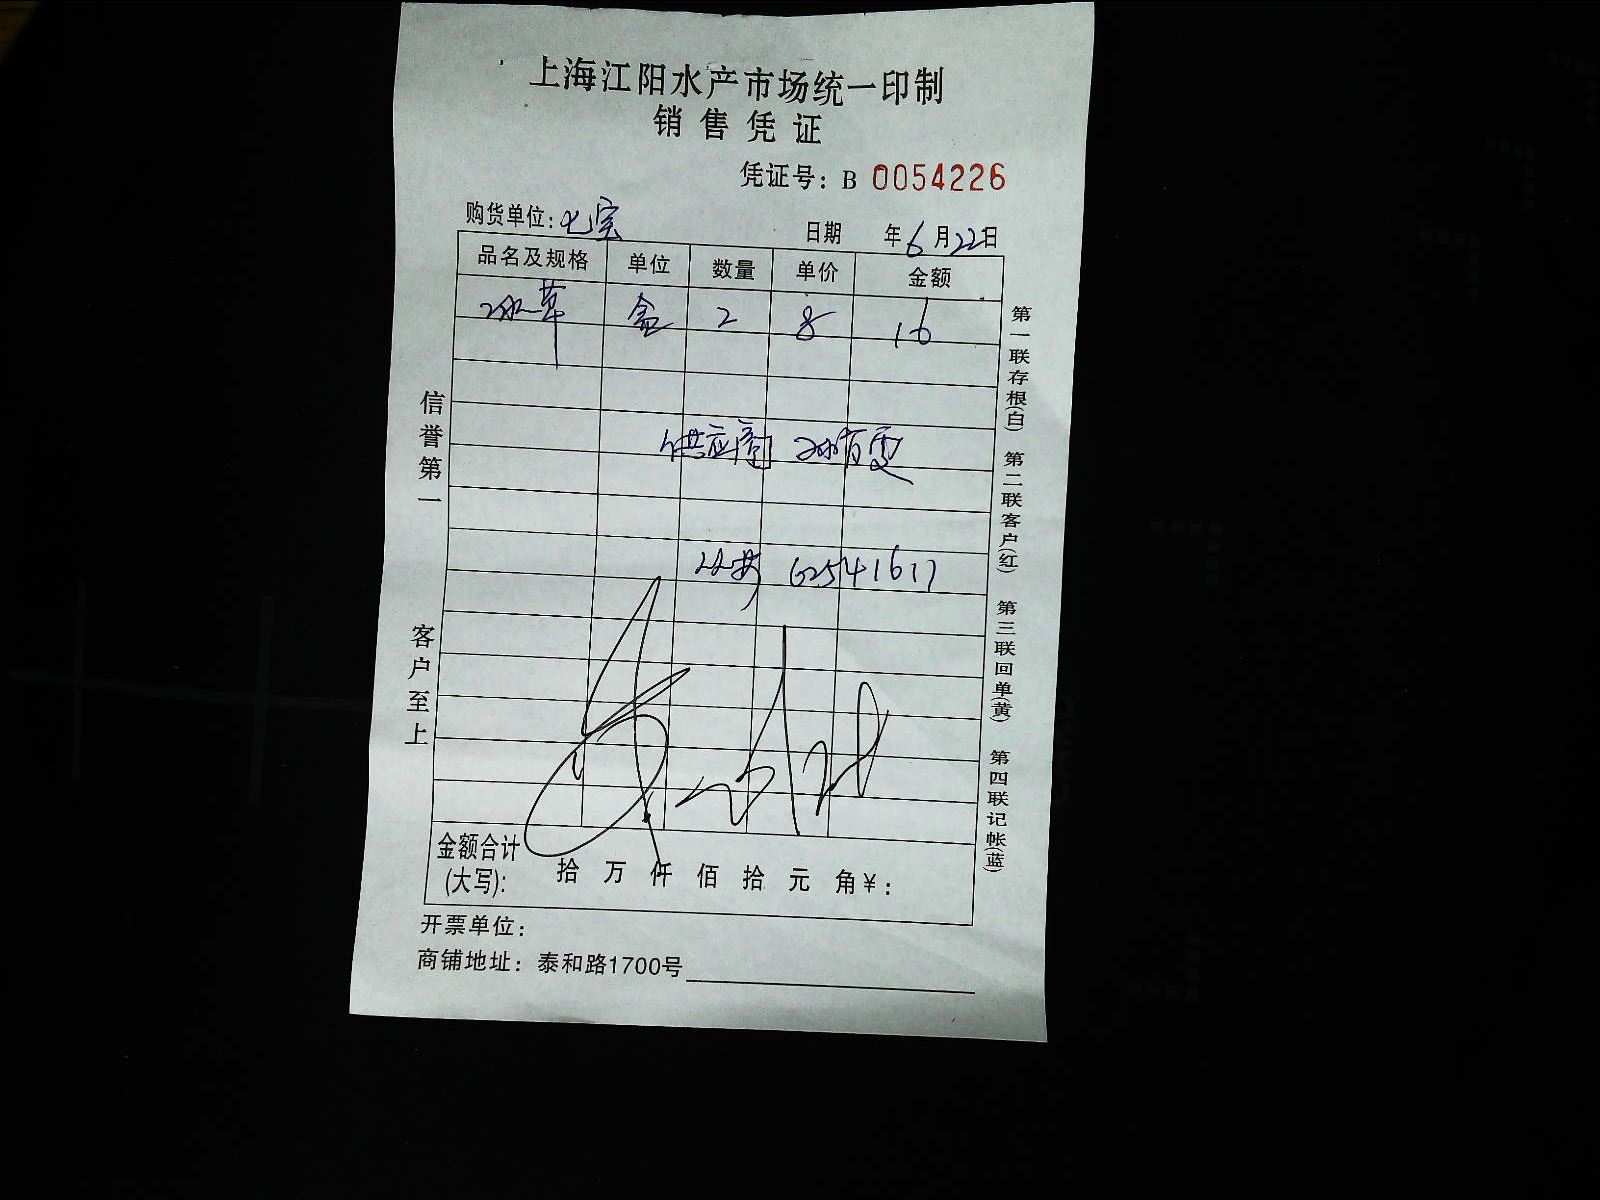 上海江阳水产市场统一印制
销售凭证
凭证号：B 0054226
购货单位：七宗
日期 年6月22日
品名及规格 单位 数量 单价 金额
冰草 盒 2 8 16
供应商
62541617
金额合计(大写)： 拾 万 仟 佰 拾 元 角 ¥：
开票单位：
商铺地址：泰和路1700号
信誉第一
客户至上
第一联存根(白)
第二联客户(红)
第三联回单(黄)
第四联记帐(蓝)